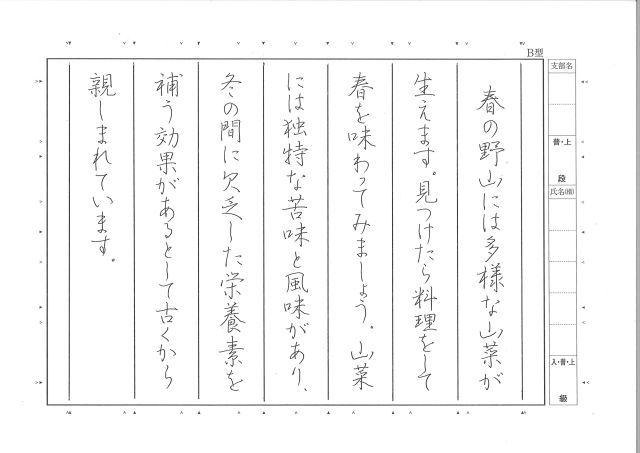 B型
支部名
普・上
段
氏名㈱
人・普・上
級
春の野山には多様な山菜が
生えます。見つけたら料理をして
春を味わってみましょう。山菜
には独特な苦味と風味があり、
冬の間に欠乏した栄養素を
補う効果があるとして古くから
親しまれています。